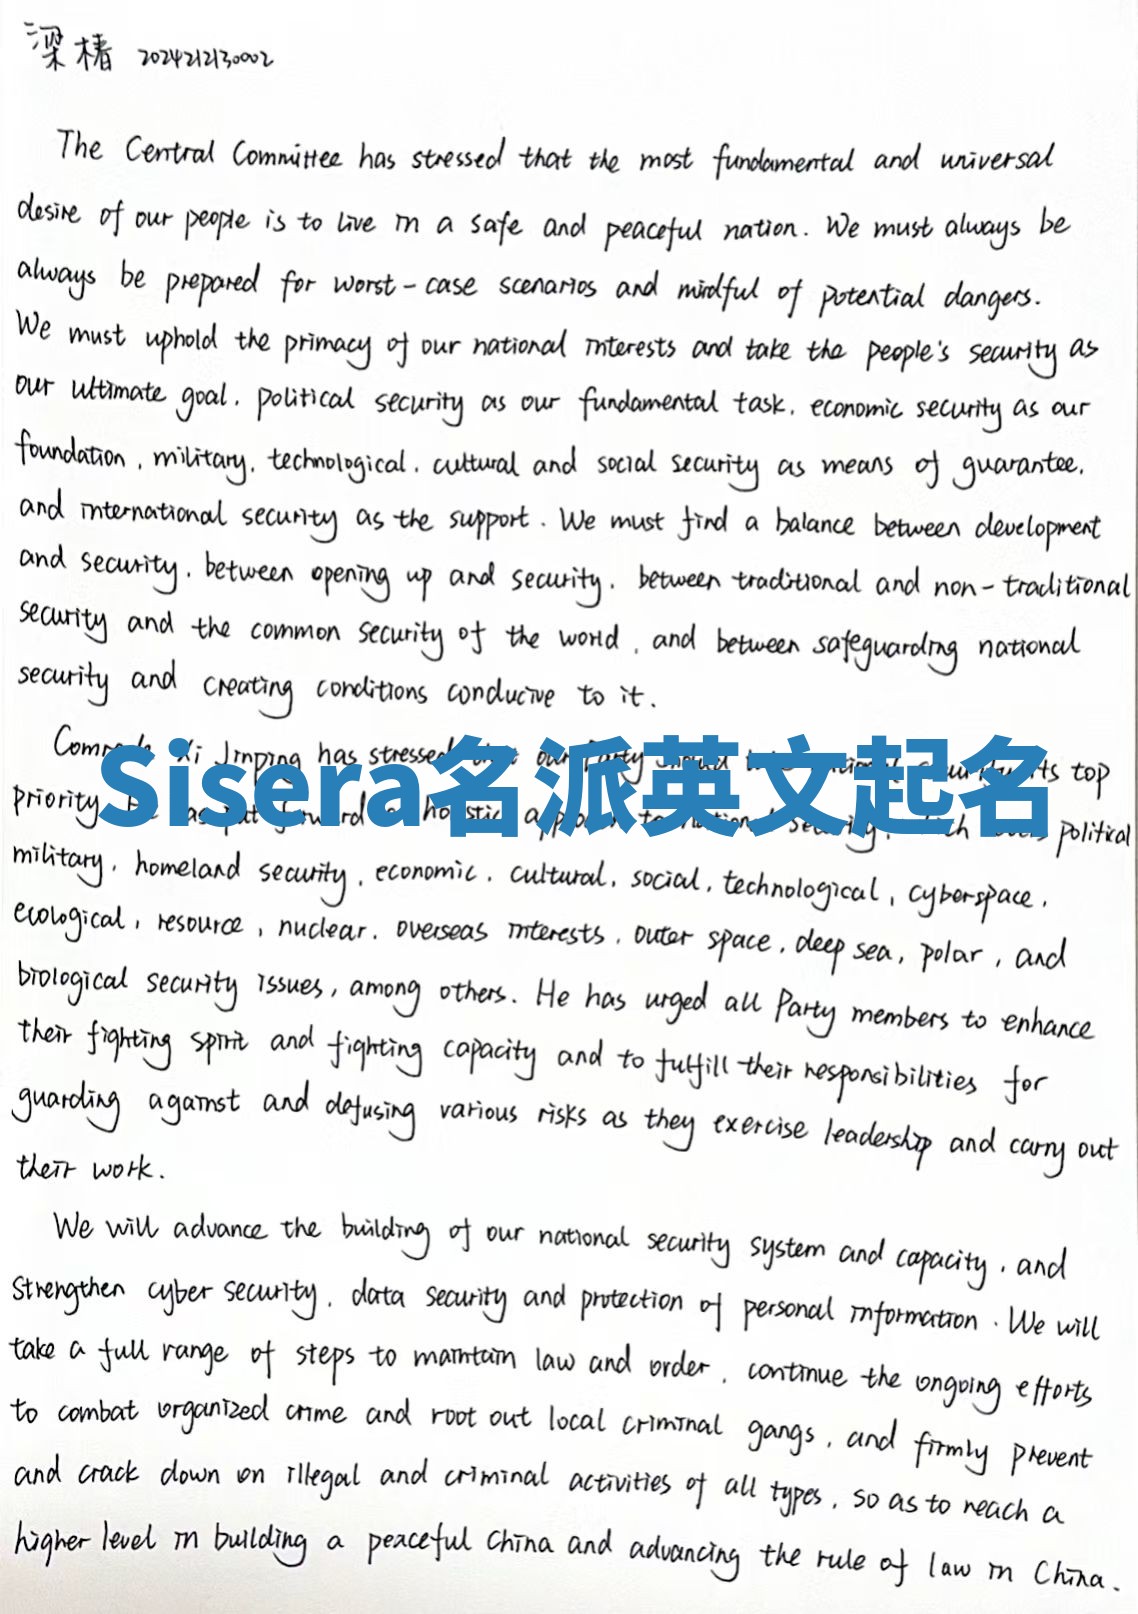 梁椿 2024212130002
The Central Committee has stressed that the most fundamental and universal
desire of our people is to live in a safe and peaceful nation. We must always be
always be prepared for worst-case scenarios and mindful of potential dangers.
We must uphold the primacy of our national interests and take the people's security as
our ultimate goal, political security as our fundamental task, economic security as our
foundation, military, technological, cultural and social security as means of guarantee,
and international security as the support. We must find a balance between development
and security, between opening up and security, between traditional and non-traditional
security and the common security of the world, and between safeguarding national
security and creating conditions conducive to it.
Xi Jinping has stressed our Party top
Sisera名派英文起名
priority political
military, homeland security, economic, cultural, social, technological, cyberspace,
ecological, resource, nuclear, overseas interests, outer space, deep sea, polar, and
biological security issues, among others. He has urged all Party members to enhance
their fighting spirit and fighting capacity and to fulfill their responsibilities for
guarding against and defusing various risks as they exercise leadership and carry out
their work.
We will advance the building of our national security system and capacity, and
strengthen cyber security, data security and protection of personal information. We will
take a full range of steps to maintain law and order, continue the ongoing efforts
to combat organized crime and root out local criminal gangs, and firmly prevent
and crack down on illegal and criminal activities of all types, so as to reach a
higher level in building a peaceful China and advancing the rule of law in China.